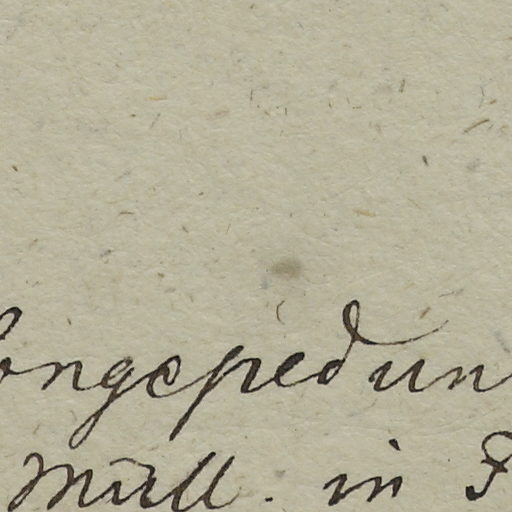 longepedun
Müll. in F